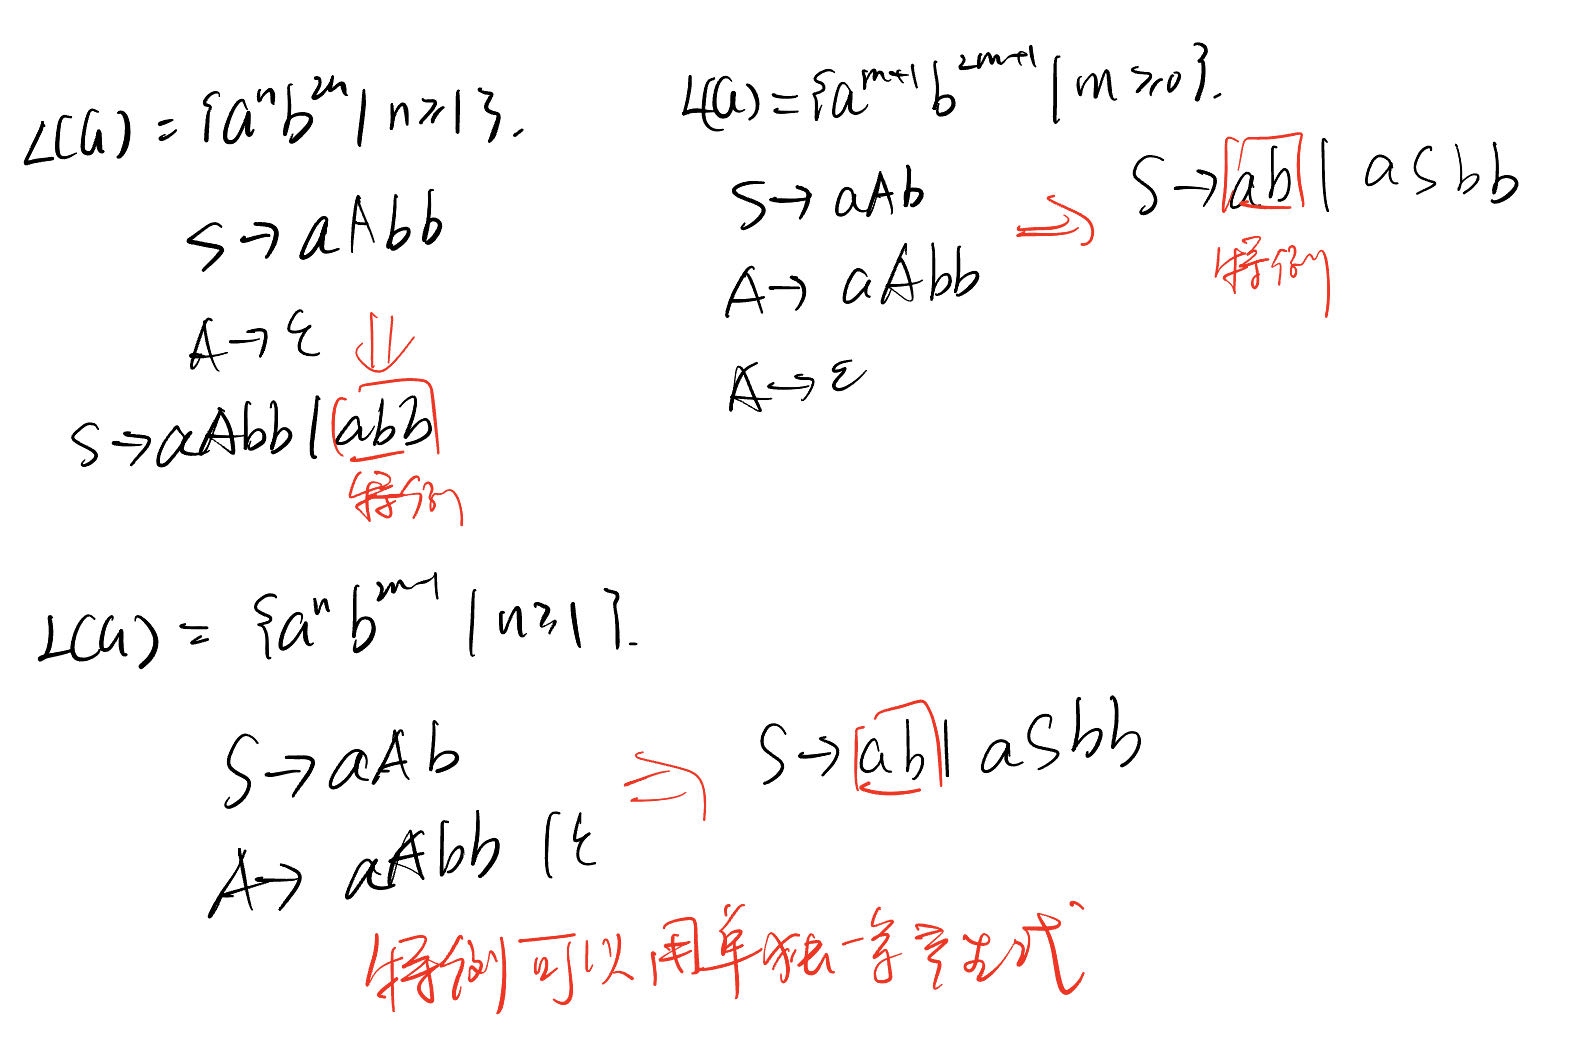 L(G) = {aⁿb²ⁿ | n≥1}.
S→aAbb
A→ε ⇓
S→aAbb | abb
特例
L(G) = {aᵐ⁺¹b²ᵐ⁺¹ | m≥0}.
S→aAb ⇒ S→ab | aSbb
特例
A→aAbb
A→ε
L(G) = {aⁿb²ⁿ⁻¹ | n≥1}.
S→aAb ⇒ S→ab | aSbb
A→aAbb | ε
特例可以用单独一条产生式